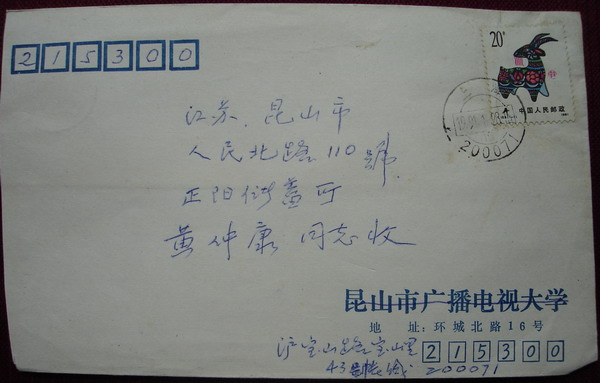 215300
20分
中国人民邮政
200071
江苏 昆山市
人民北路110號
正阳
黄仲康 同志收
昆山市广播电视大学
地 址：环城北路16号
沪宝山路宝山里 215300
43號 200071